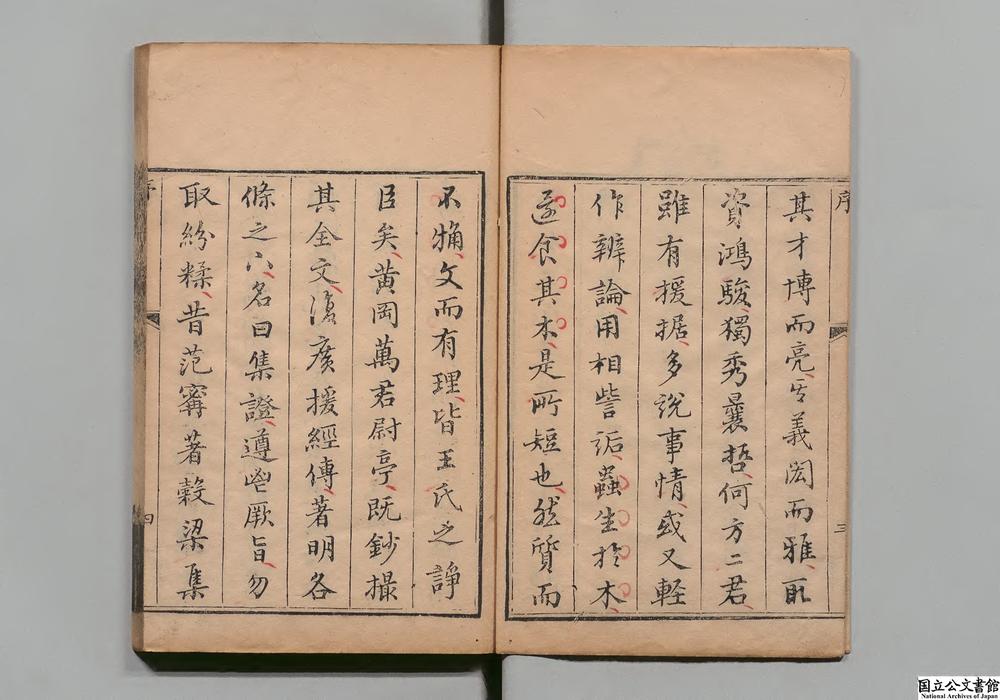 序
三
其才博而亮義閎而雅取
資鴻駿獨秀曩哲何方二君
雖有援据多說事情或又軽
作辨論用相訾詬蟲生於木
遂食其木是所短也然質而
不觕文而有理皆王氏之諍
臣矣黄岡萬君尉亭既鈔撮
其全文復廣援經傳著明各
條之下名曰集證遵厥旨勿
取紛糅昔范甯著穀梁集
序
四
国立公文書館
National Archives of Japan